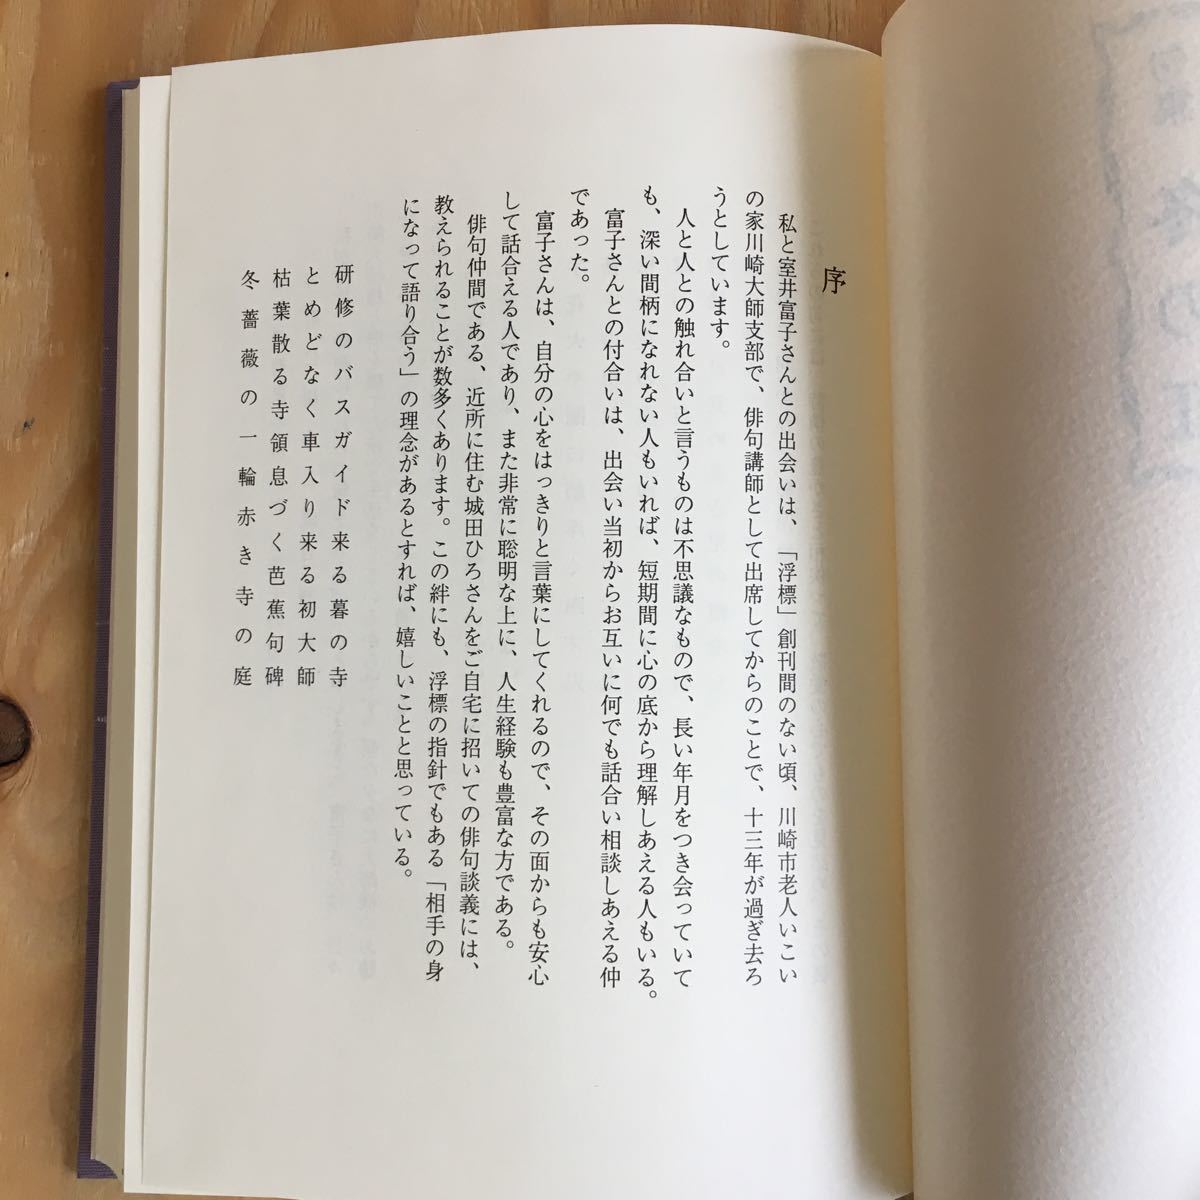 序
私と室井富子さんとの出会いは、「浮標」創刊間のない頃、川崎市老人いこい
の家川崎大師支部で、俳句講師として出席してからのことで、十三年が過ぎ去ろ
うとしています。
人と人との触れ合いと言うものは不思議なもので、長い年月をつき会っていて
も、深い間柄になれない人もいれば、短期間に心の底から理解しあえる人もいる。
富子さんとの付合いは、出会い当初からお互いに何でも話合い相談しあえる仲
であった。
富子さんは、自分の心をはっきりと言葉にしてくれるので、その面からも安心
して話合える人であり、また非常に聡明な上に、人生経験も豊富な方である。
俳句仲間である、近所に住む城田ひろさんをご自宅に招いての俳句談義には、
教えられることが数多くあります。この絆にも、浮標の指針でもある「相手の身
になって語り合う」の理念があるとすれば、嬉しいことと思っている。
研修のバスガイド来る暮の寺
とめどなく車入り来る初大師
枯葉散る寺領息づく芭蕉句碑
冬薔薇の一輪赤き寺の庭